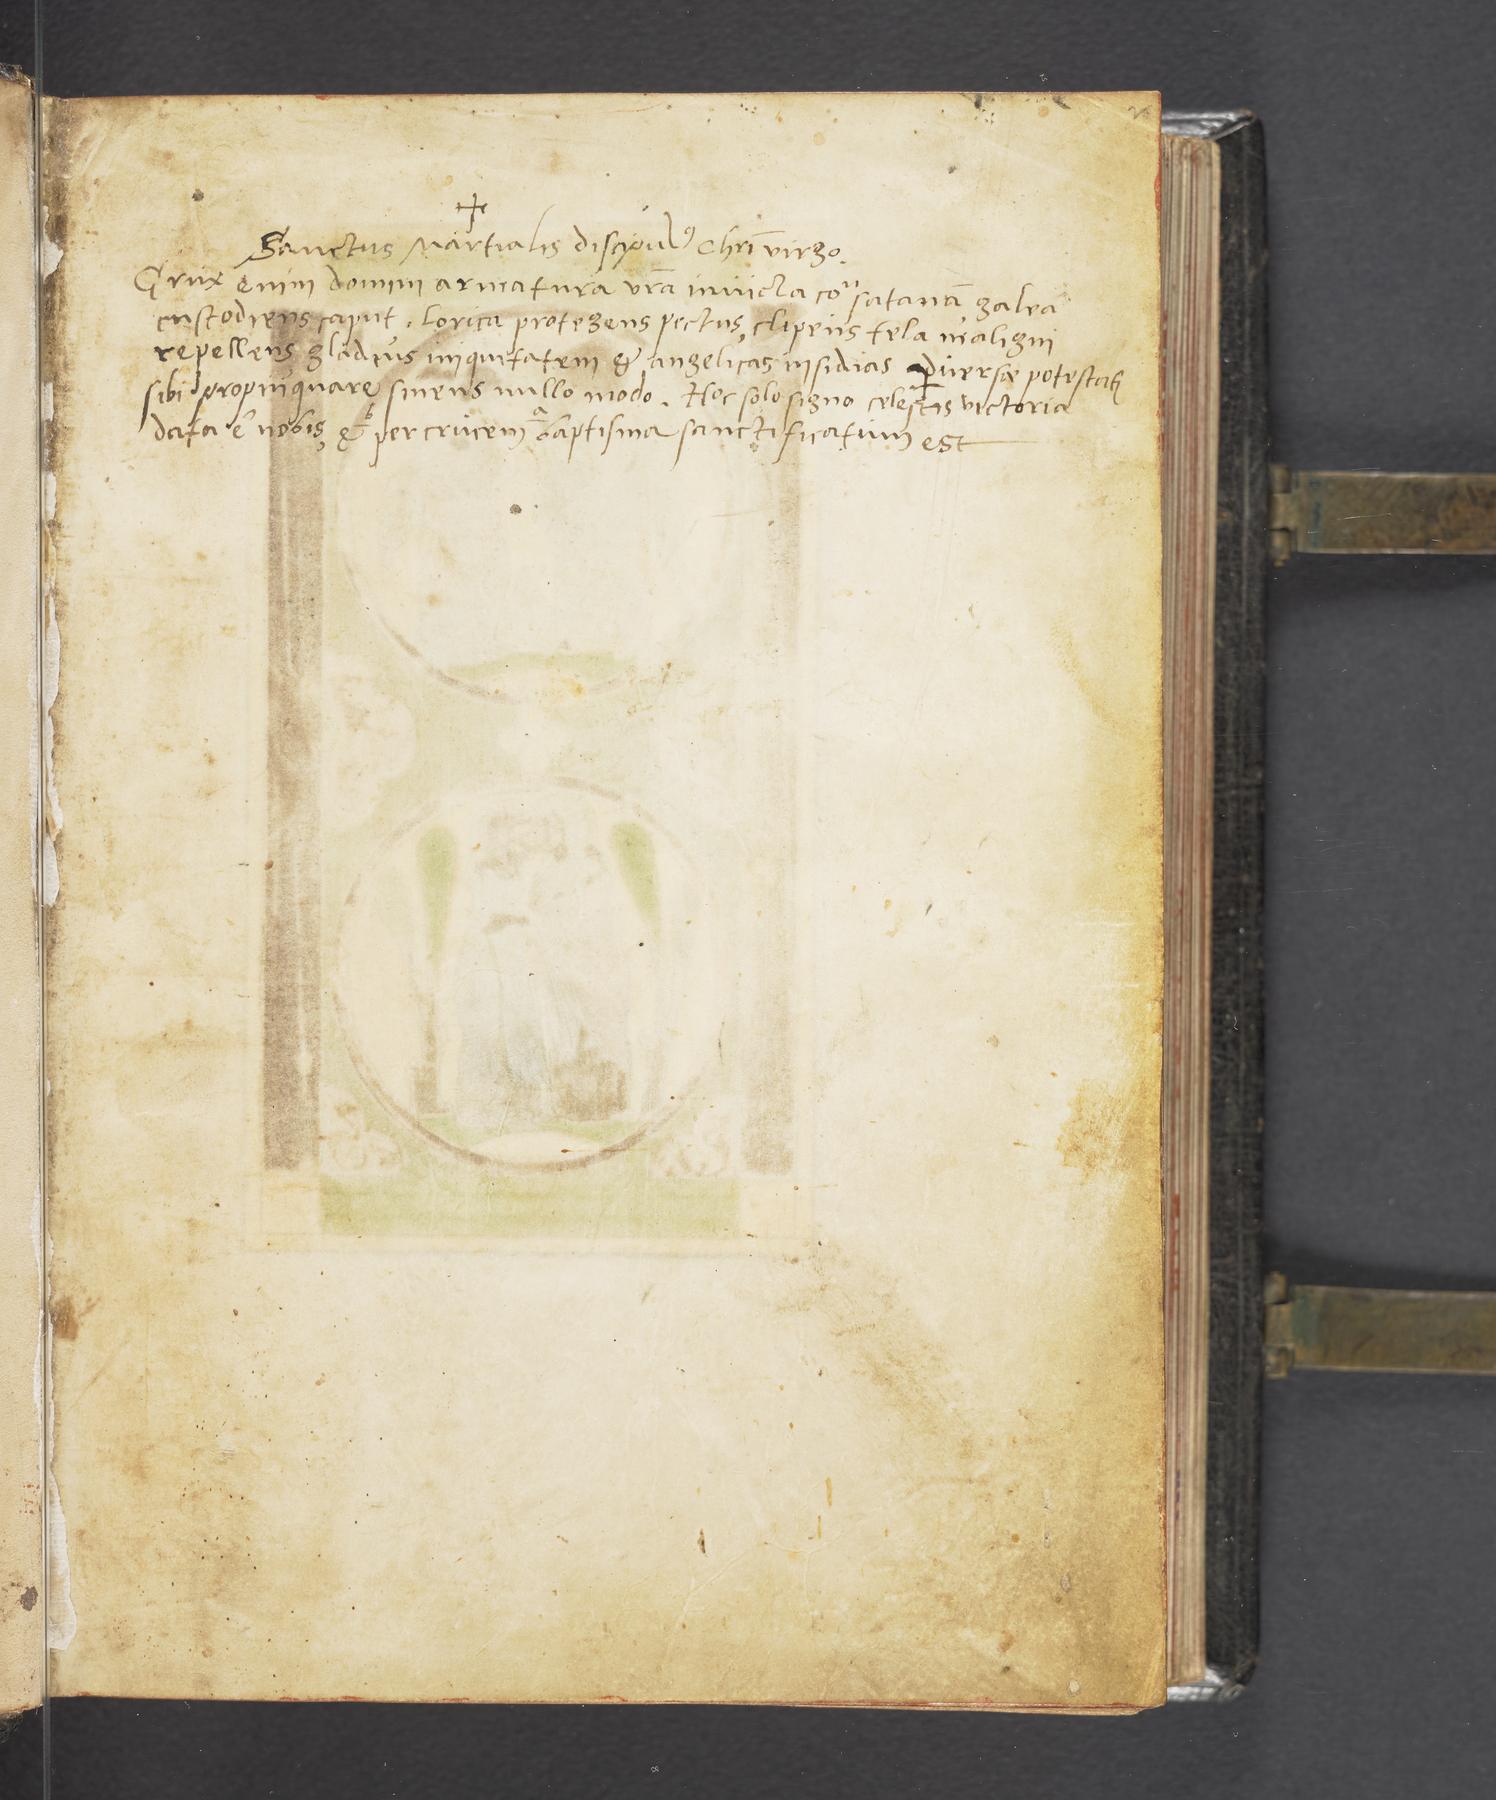 ✝
Sanctus Martialis discipulꝰ Chrī virgo.
Crux enim domini armatura vr̄a inuicta cōͣ satanā galea
custodiens caput. lorica protegens pectus, clipeus tela maligni
repellens gladius iniquitatem & angelicas insidias ꝑuersæ potestatis
sibi propinquare sinens nullo modo. Hoc solo signo celestis victoria
data ē nobis, & per crucem baptisma sanctificatum est